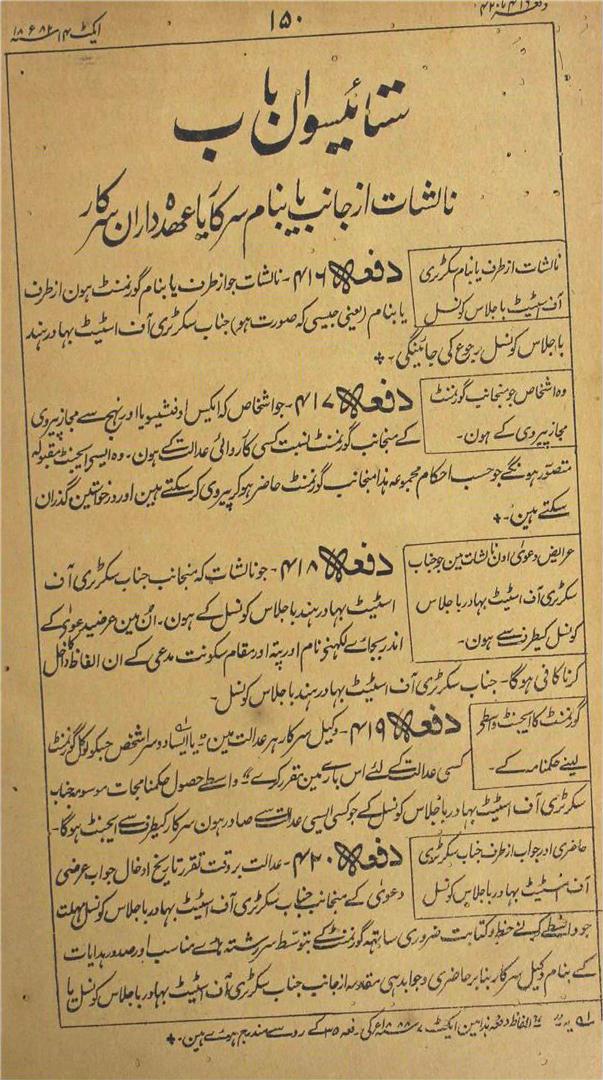 دفعہ ۴۱۶ تا ۴۲۰
۱۵۰
ایکٹ ۱۴ سنہ ۱۸۸۲ء
ستائیسواں باب
نالشات از جانب یا بنام سرکار یا عہدہ داران سرکار
نالشات از طرف یا بنام سکرٹری
آف اسٹیٹ باجلاس کونسل
دفعہ ۴۱۶ - نالشات جو از طرف یا بنام گورنمنٹ ہون از طرف
یا بنام (یعنی جیسی کہ صورت ہو) جناب سکرٹری آف اسٹیٹ بہادر ہند
باجلاس کونسل رجوع کی جائینگی -
وہ اشخاص جو منجانب گورنمنٹ
مجاز پیروی کے ہون -
دفعہ ۴۱۷ - جو اشخاص کہ ایکس اوفیشیو یا اور نہج سے مجاز پیروی
کے منجانب گورنمنٹ نسبت کسی کارروائی عدالت کے ہون - وہ ایسی ایجنٹ مقبولہ
متصور ہونگے جو حسب احکام مجموعہ ہذا منجانب گورنمنٹ حاضر ہوکر پیروی کرسکتے ہین اور درخواستین گذران
سکتے ہین -
عرایض دعوی اون نالشات مین جو جناب
سکرٹری آف اسٹیٹ بہادر باجلاس
کونسل کیطرف سے ہون -
دفعہ ۴۱۸ - جو نالشات کہ منجانب جناب سکرٹری آف
اسٹیٹ بہادر ہند باجلاس کونسل کے ہون - اُن مین عرضیدعوی کے
اندر بجائے لکہنی نام اور پتہ اور مقام سکونت مدعی کے ان الفاظ کا داخل
کرنا کافی ہوگا - جناب سکرٹری آف اسٹیٹ بہادر ہند باجلاس کونسل -
گورنمنٹ کا ایجنٹ واسطے
لینے حکمنامہ کے -
دفعہ ۴۱۹ - وکیل سرکار ہر عدالت مین یا ایسا دوسرا شخص جسکو لوکل گورنمنٹ
کسی عدالت کے لئے اس بارے مین مقرر کرے واسطے حصول حکمنامجات موسومہ جناب
سکرٹری آف اسٹیٹ بہادر باجلاس کونسل کے جو کسی ایسی عدالت سے صادر ہون سرکار کیطرف سے ایجنٹ ہوگا -
حاضری اور جواب از طرف جناب سکرٹری
آف اسٹیٹ بہادر باجلاس کونسل
دفعہ ۴۲۰ - عدالت بروقت تقرر تاریخ ادخال جواب عرضی
دعوی کے منجانب جناب سکرٹری آف اسٹیٹ بہادر باجلاس کونسل مہلت
جو واسطے کرنے خط و کتابت ضروری ساتھ گورنمنٹ کے بتوسط سررشتہ ہاے مناسب اور صدور ہدایات
کے بنام وکیل سرکار بنابر حاضری و جوابدہی مقدمہ از جانب جناب سکرٹری آف اسٹیٹ بہادر باجلاس کونسل یا
الفاظ دفعہ ہذا مین ایکٹ ۷ سنہ ۱۸۸۸ء کی دفعہ ۳۵ کے روسے مندرج ہوئے ہین -